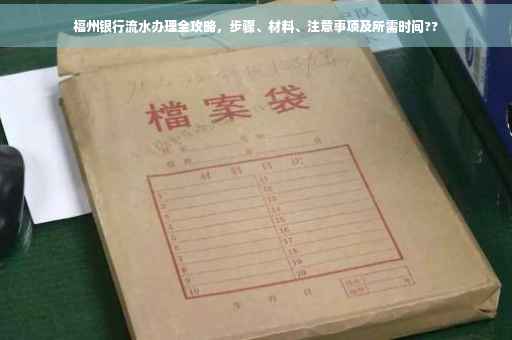 福州银行流水办理全攻略，步骤、材料、注意事项及所需时间??
檔案袋
材料目次
1 11
2 12
3 13
4 14
5 15
6 16
7 17
8 18
9 19
10 20
年 月 日